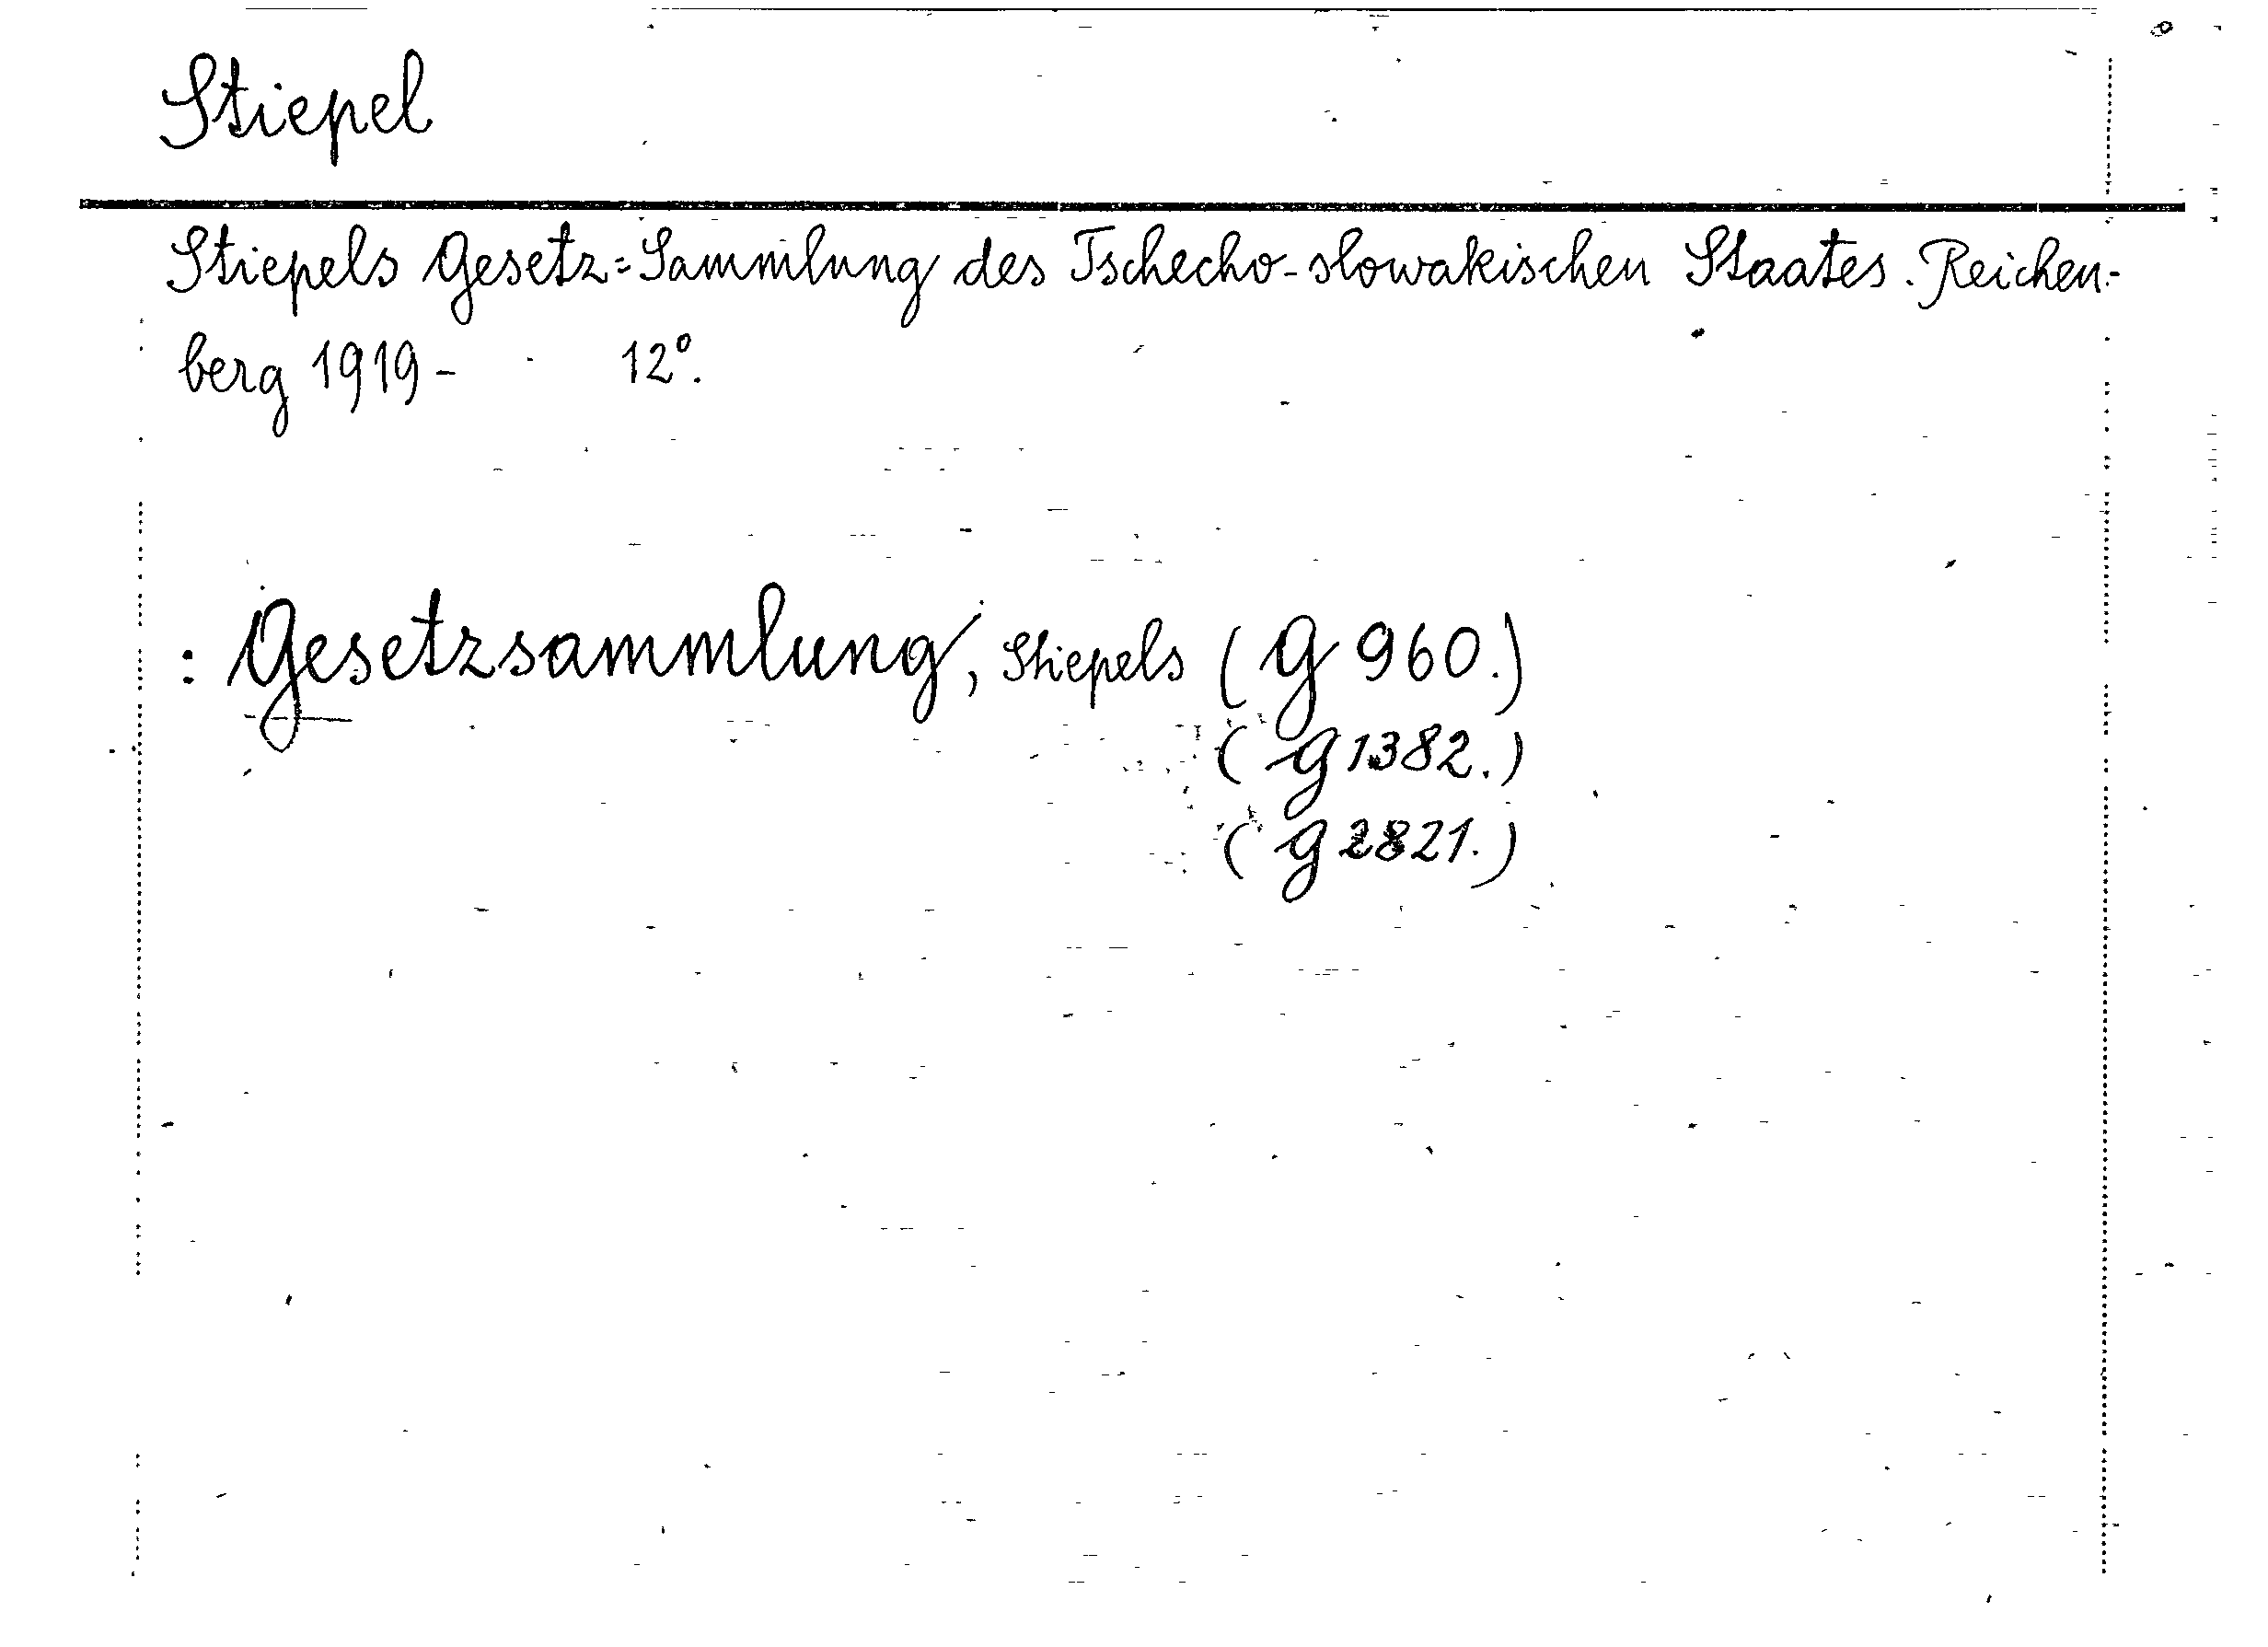 Stiepel
Stiepels Gesetz=Sammlung des Tschecho-slowakischen Staates. Reichen-
berg 1919- 12°.
: Gesetzsammlung, Stiepels (G 960.)
(G 1382.)
(G 2821.)